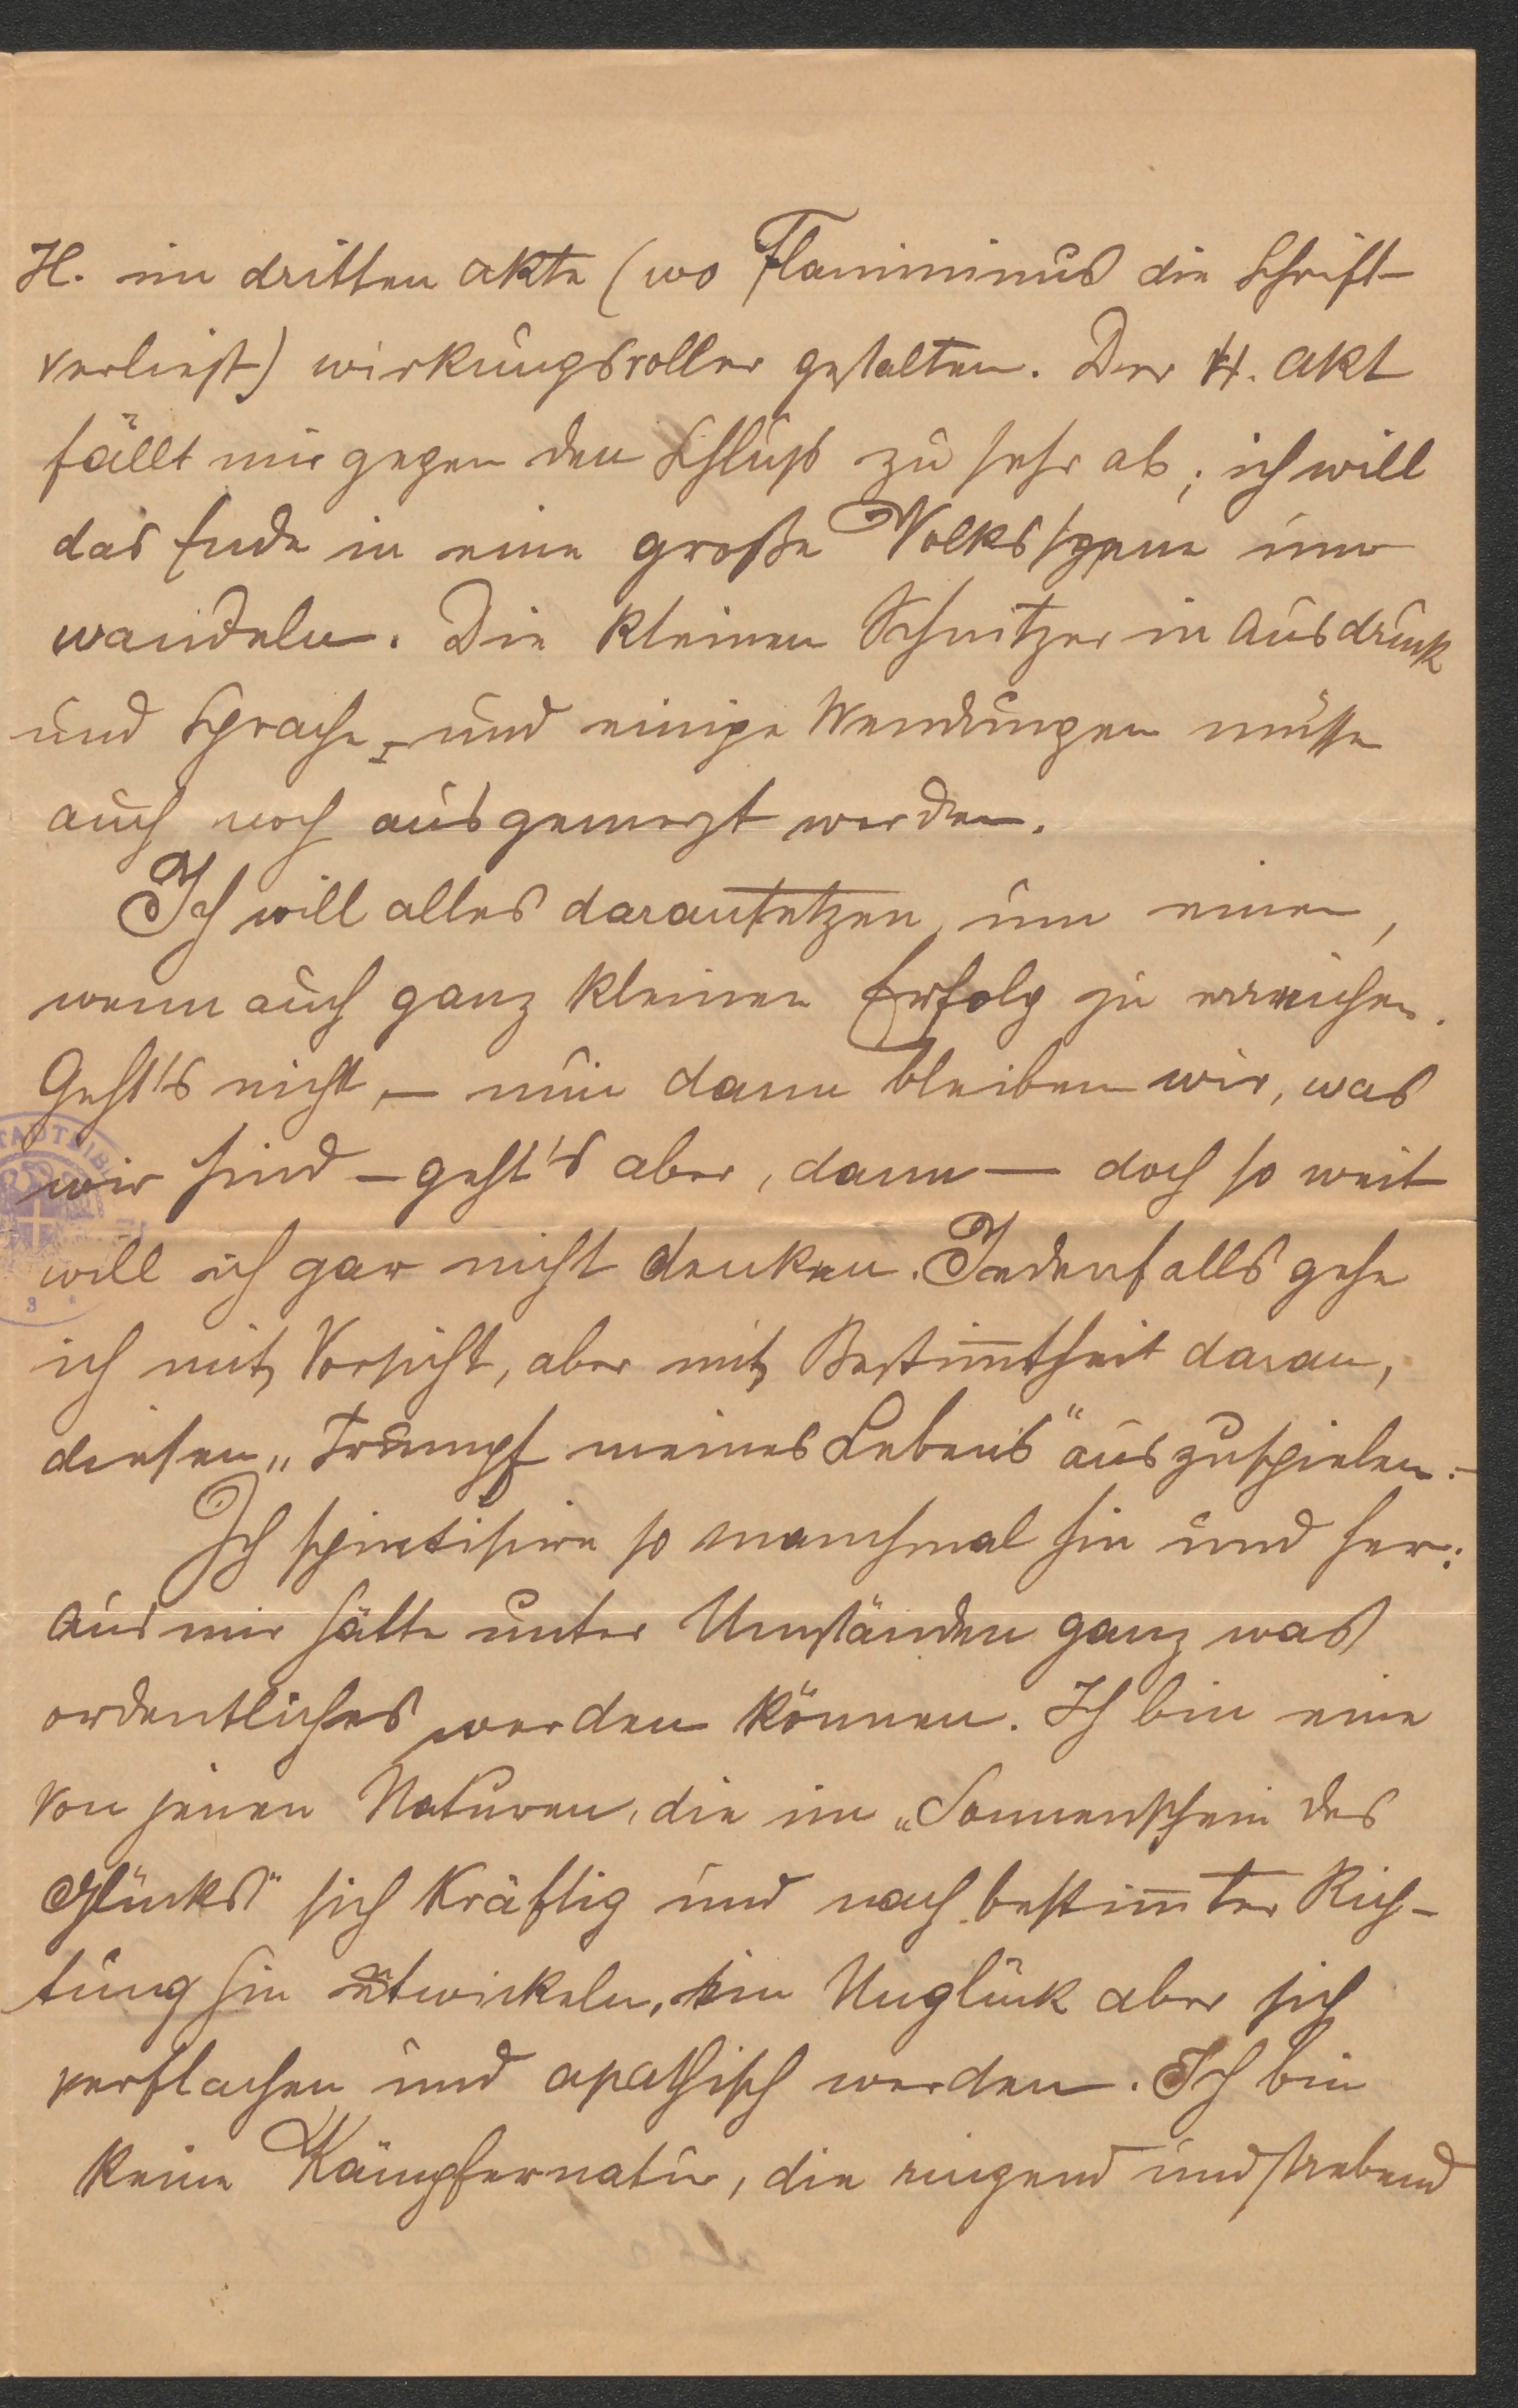 H. im dritten Akte (wo Flaminimus die Schrift
verliest) wirkungsvoller gestalten. Der 4. Akt
fällt mir gegen den Schluß zu sehr ab; ich will
das Ende in eine große Volksszene um
wandeln. Die kleinen Schnitzer in Ausdruck
und Sprache und einige Wendungen müsse
auch noch ausgemerzt werden.
Ich will alles daransetzen, um einen,
wenn auch ganz kleinen Erfolg zu erreichen.
Geht's nicht, – nun dann bleiben wir, was
wir sind – geht's aber, dann – doch so weit
will ich gar nicht denken. Jedenfalls gehe
ich mit Vorsicht, aber mit Bestim̅theit daran,
diesen „Trumpf meines Lebens“ auszuspielen. –
Ich spintisire so manchmal hin und her:
Aus mir hätte unter Umständen ganz was
ordentliches werden können. Ich bin eine
von jenen Naturen, die im „Sonnenschein des
Glücks“ sich kräftig und nach bestim̅ter Rich-
tung hin entwickeln, im Unglück aber sich
verflachen und apathisch werden. Ich bin
keine Kämpfernatur, die ringend und strebend